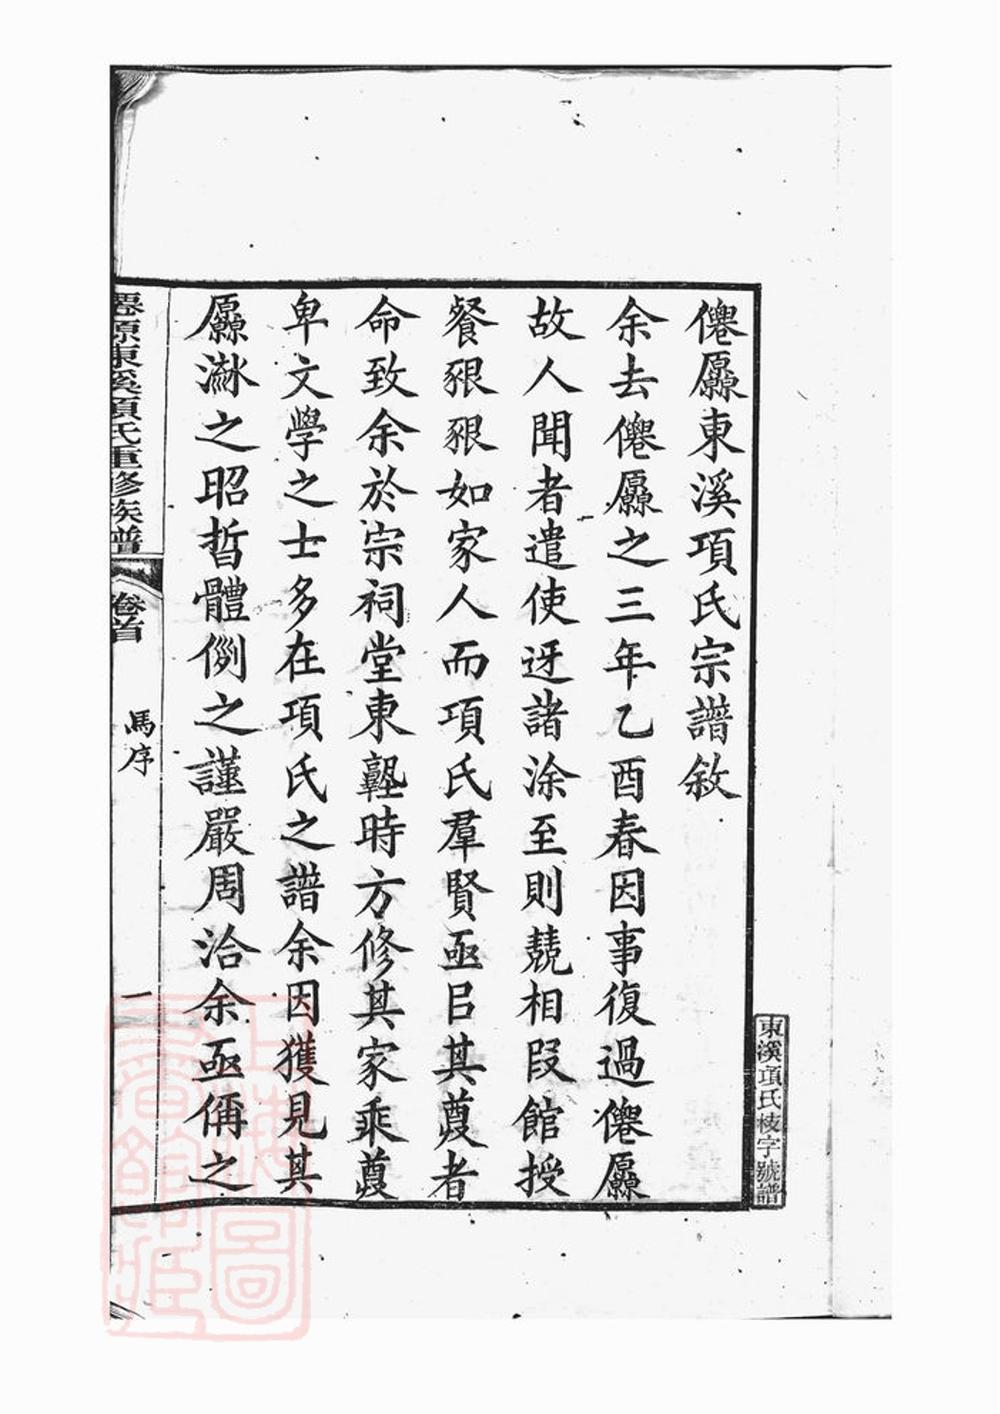 僊厵東溪項氏宗譜敘
余去僊厵之三年乙酉春因事復過僊厵
故人聞者遣使迓諸涂至則兢相叚館授
餐豤豤如家人而項氏羣賢亟㠯其蒦者
命致余於宗祠堂東塾時方修其家乘蒦
卑文學之士多在項氏之譜余因獲見其
厵淋之昭晢體例之謹嚴周洽余亟偁之
僊源東溪項氏重修族譜
卷首
馬序
一
東溪項氏枝字號譜
上海圖書館藏